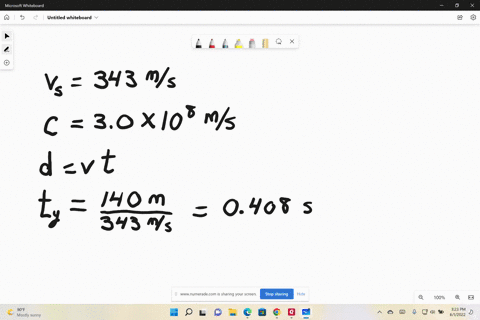 Microsoft Whiteboard
Untitled whiteboard
vₛ = 343 m/s
c = 3.0 × 10⁸ m/s
d = vt
t_y = 140 m / 343 m/s = 0.408 s
www.numerade.com is sharing your screen. Stop sharing Hide
100%
90°F
Mostly sunny
6/1/2022